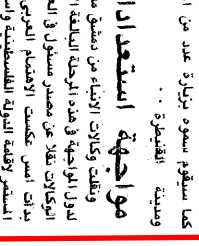 كما سيقوم سموه بزيارة عدد من ا
ومدينة القنيطرة ..
مواجهة استعدادا
ونقلت وكالات الانباء من دمشق
لدول المواجهة في هذه المرحلة البالغة
الوكالات نقلا عن مصدر مسئول في
بدأت امس عكست الاهتمام العربي
المستمر لاقامة الدولة الفلسطينية